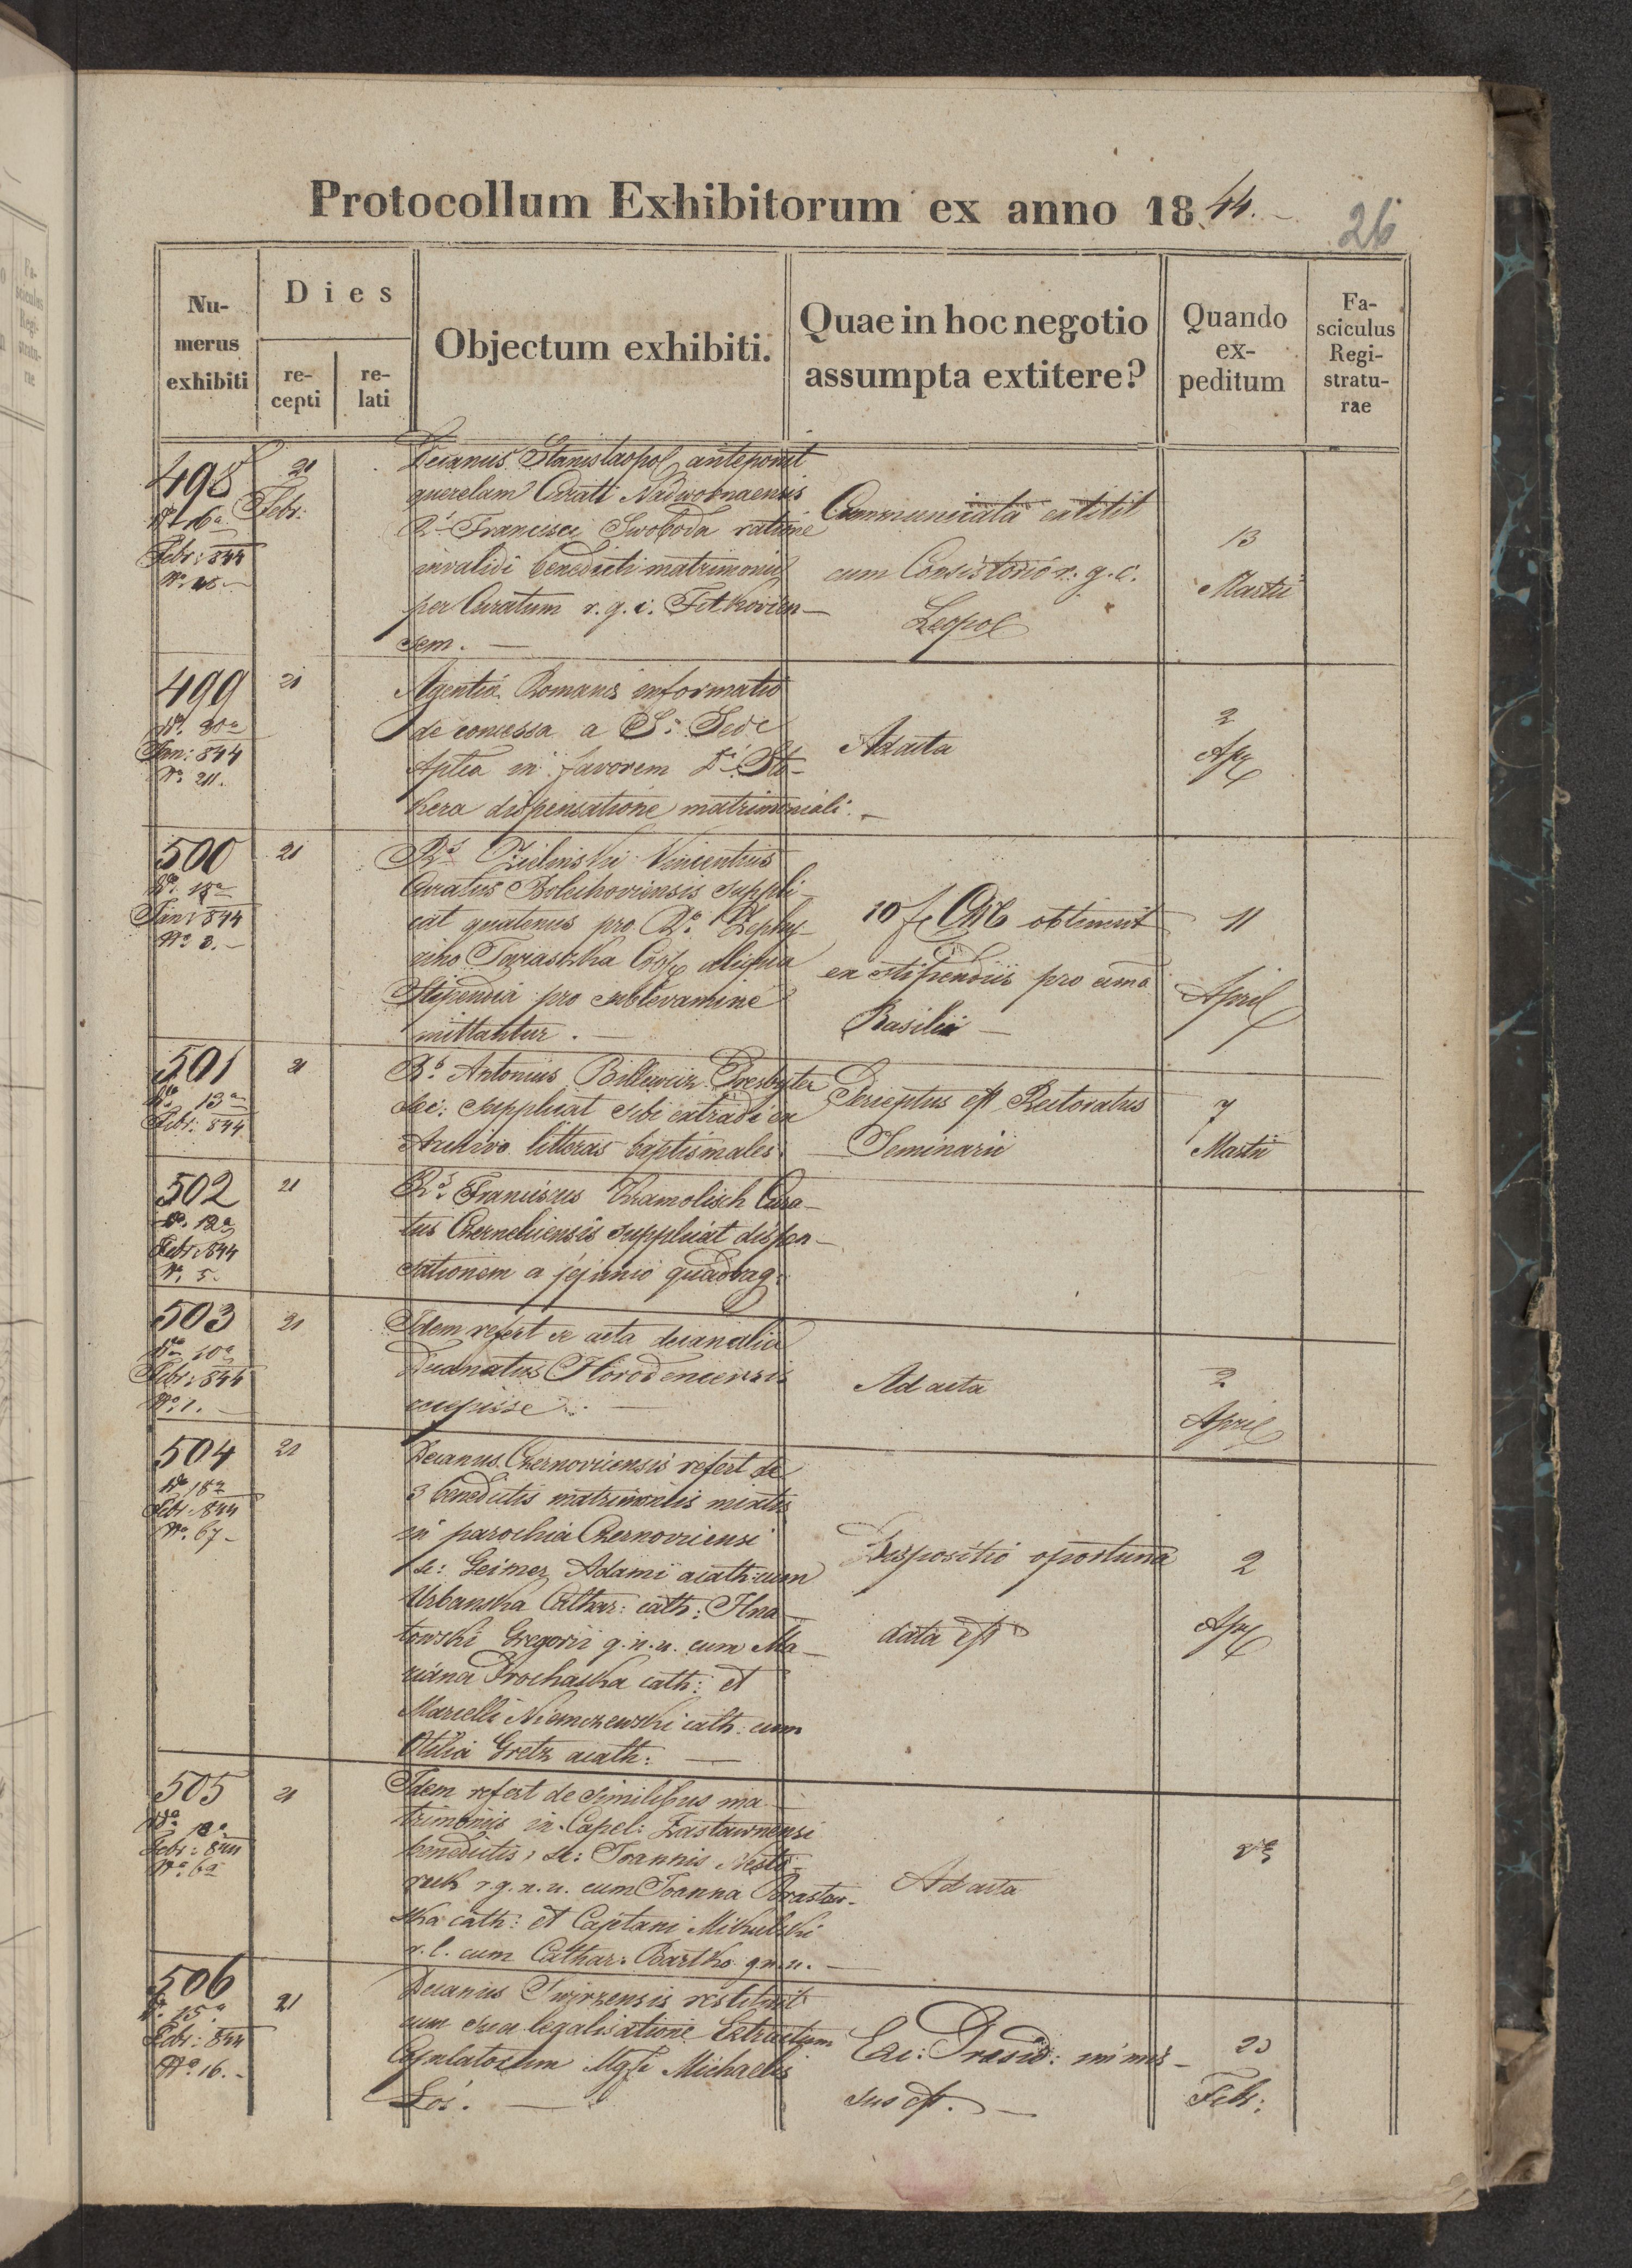 Protocollum Exhibitorum ex anno 1844.
26
Nu-
merus
exhibiti
Dies
re-
cepti
re-
lati
Objectum exhibiti.
Quae in hoc negotio
assumpta extitere?
Quando
ex-
peditum
Fa-
sciculus
Regi-
stratu-
rae
498
16a
Febr: 844
No.
21
Febr:
Decanus Stanislaopol anteponit
querelam Curati Nadwornaensis
Francisci Swoboda ratione
invalidi benedicti matrimonii
per Curatum r. g. c. Fitkovien-
sem.
Communicata extitit
cum Consistorio r. g. c.
Leopol
13
Martii
499
30a
Jan: 844
No. 211.
21
Agentiae Romanis informatio
de concessa a S. Sede
Aptca in favorem
kera dispensatione matrimoniali.
Ad acta
2
Apr
500
Jan: 844
No. 2.
21
Rs Zielinski Vincentius
Curatus Bolechoviensis suppli-
cat quatenus pro Ro Zephy-
rino Tovarszka Coop aliqua
Stipendia pro sublevamine
mittantur.
10 f CM obtinuit
ex stipendiis pro
Basilii
11
April
501
13a
Febr: 844
21
Rs Antonius Billewicz Presbyter
suppliicat sibi extradi ex
Archivo litteras baptismales
Perceptus est Rectoratus
Seminarii
7
Martii
502
12a
Febr: 844
No. 5.
21
Rs Franciscus Chramolisch Cura-
tus Czernelicensis supplicat dispen-
sationem a jejunio quadrag:
503
10a
Febr: 844
No. 1.
21
Idem refert se acta decanalia
Decanatus Horodencensis
cepisse
Ad acta
2
April
504
18a
Febr: 844
No. 67
21
Decanus Czernoviciensis refert de
3 benedictis matrimoniis mixtis
in parochia Czernoviciensi
sc: Geimer Adami acath: cum
Urbanska Cathar: cath: Hna-
towski Gregorii g. n. u. cum Ma-
riana Prochaska cath: et
Marcelli Niemczewski cath: cum
Otilia Gretz acath:
Dispositio oportuna
data est
2
Apr
505
18a
Febr: 844
No. 68
21
Idem refert de similibus ma-
trimoniis in Capel: Zastawnensi
benedictis, sc: Joannis Nesto-
ruk r. g. n. u. cum Joanna
ska cath: et Cajetani Mikulski
r. l. cum Cathar: Bartko g. n. u.
Ad acta
506
15a
Febr: 844
No. 16.
21
Decanus Swirzensis restituit
cum sua legalisatione Extractum
Copulatorum Mgfi Michaelis
Łoś.
Exc: Praesid: immis-
sus est.
23
Febr: